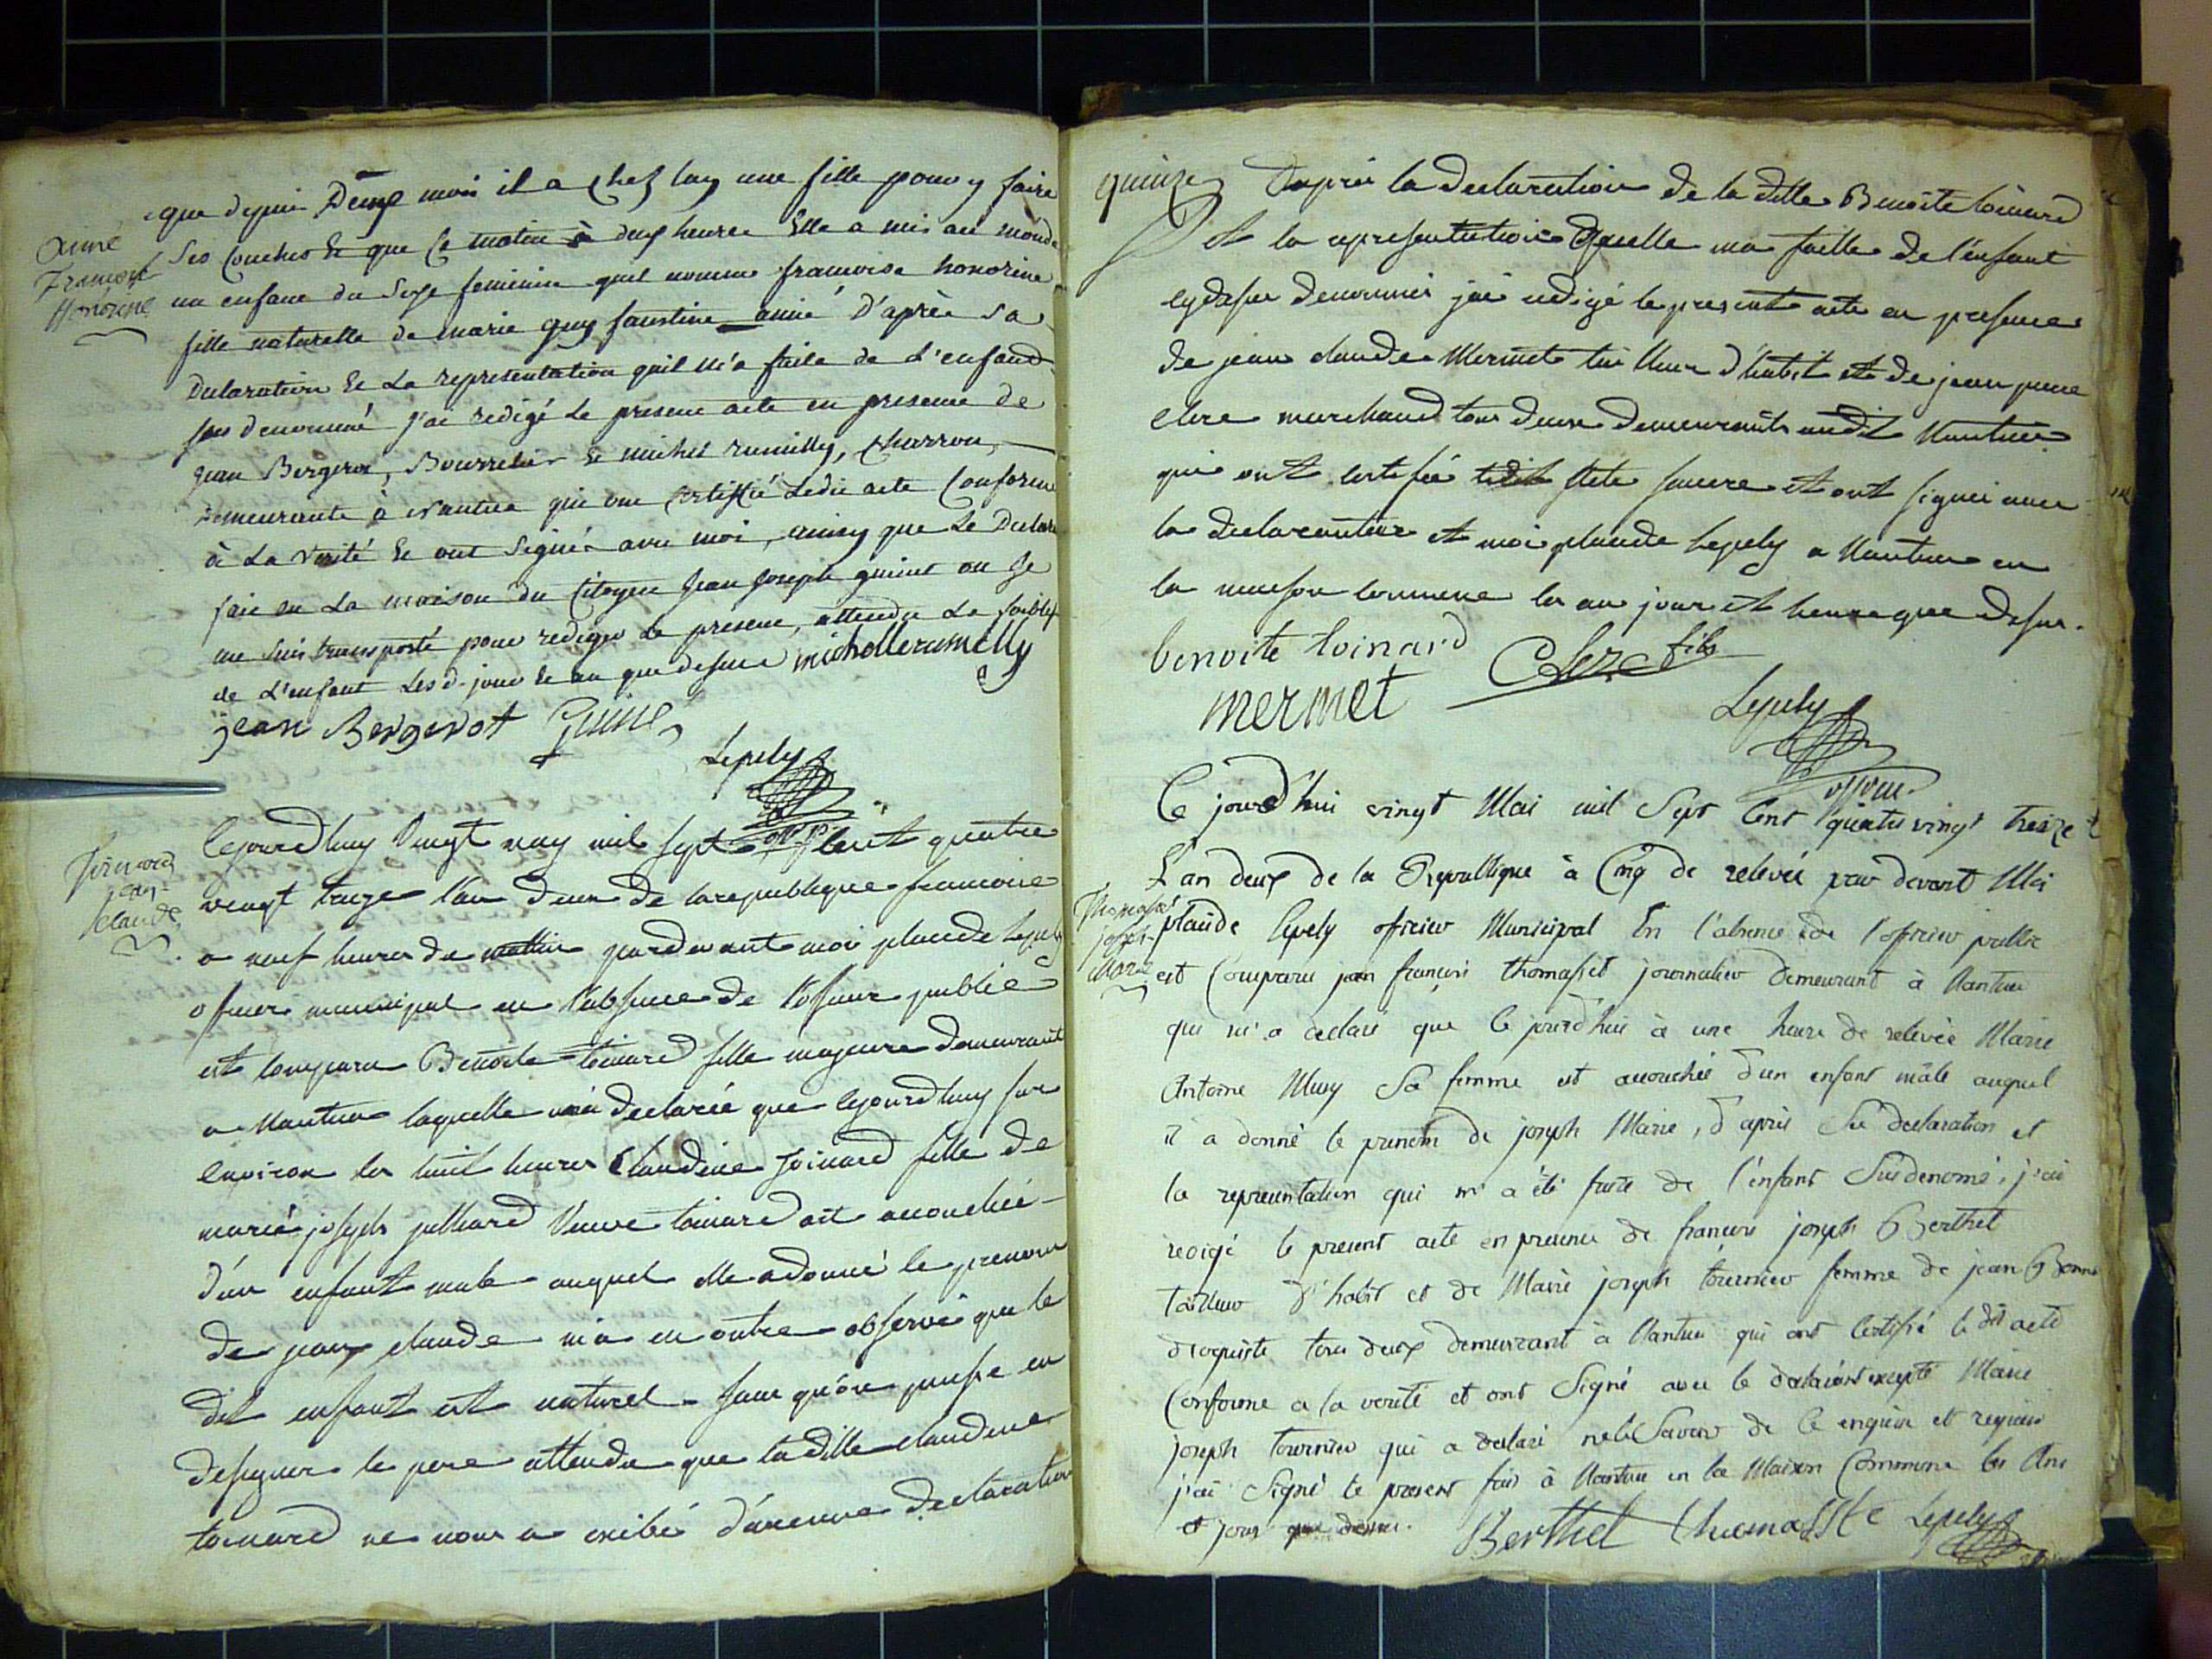 que depuis Deux mois il a chez luy une fille pour y faire
Ses Couches & que Ce matin à deux heures Elle a mis au monde
Aimé
Francoise
Honorine
un enfant du Sexe feminin quil nomme francoise honorine
fille naturelle de marie guy faustine aimé D'après sa
Declaration & La representation quil m'a faite de L'enfand
sus denommé J'ai redigé Le present acte en presence de
Jean Bergerot, Bourrelier & michel rumilly, Charron,
demeurants à Nantua qui ont Certiffié Ledit acte Conforme
à La verité & ont Signés avec moi, ainsy que Le Declar
fait en La maison du Citoyen Jean Joseph guinet ou Je
me suis transporté pour rediger Le present, attendu La foibles
de L'enfant Lesd. jour & an que dessus michollerumelly
jean Bergerot Guinet
Lepely
off. p.
Toinard
jean
Claude
Cejourdhuy Vingt may mil sept Cent quatre
vingt treize l'an deux de la republique francoise
a neuf heures du mattin pardevant moi plaude Lepely
officier municipal en l'absence de l'officier public
est comparu Benoite toinard fille majeure demeurant
a Nantua laquelle m'a declarée que cejourdhuy sur
environ les huit heures Claudine Toinard fille de
marie joseph julliard Veuve toinard ait accouchée
d'un enfant male auquel elle a donné le prenom
de jean claude m'a en outre observé que le
dit enfant est naturel sans qu'on puisse en
designer le pere attendu que ladille claudine
toinard ne nous a exibé d'aucune declaration
quinze D'aprés la declaration de la ditte Benoite toinard
Et la representation quelle ma faitte de l'enfant
cydessu denommé jai redigé le present acte en presence
de jean claude Mermet tailleur d'habit et de jean pierre
Clerc marchand tous deux demeurants audit Nantua
qui ont certifié ledit acte sincere et ont signé avec
la declarante et moi plaude Lepely a Nantua en
la maison commune les an jour et heure que dessu.
benoite toinard Clerc fils
mermet
Lepely
off. pu.
Ce jourd'hui vingt Mai mil Sept Cent quatre vingt treize
L'an deux de la Republique à Cinq de relevée par devant Moi
Thomasset
joseph
Marie
plaude Lepely officier Municipal En l'absence de l'officier public
est Comparu jean francois thomasset journalier demeurant à Nantua
qui m'a declaré que Ce jourd'hui à une heure de relevée Marie
Antoine Mury Sa femme est accouchée d'un enfant mâle auquel
il a donné le prenom de joseph Marie, d'après Sa declaration et
la representation qui m'a été faite de l'enfant Susdenomé, j'ai
redigé le present acte en presence de francois joseph Berthet
tailleur d'habit et de Marie joseph tournier femme de jean Bonne
droguiste tous deux demeurant à Nantua qui ont Certifié le dit acte
Conforme a la verité et ont Signé avec le declarant excepté Marie
joseph tournier qui a declaré ne le Savoir de Ce enquise et requise
j'ai Signé le present fait à Nantua en la Maison Commune les An
et jour que dessus. Berthet thomasset Lepely